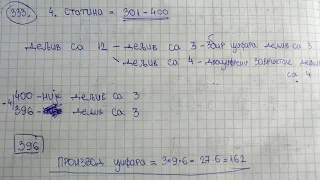 333. 4. СТОТИНА = 301-400
ДЕЉИВ СА 12 - ДЕЉИВ СА 3 - ЗБИР ЦИФАРА ДЕЉИВ СА 3
ДЕЉИВ СА 4 - ДВОЦИФРЕНИ ЗАВРШЕТАК ДЕЉИВ
СА 4
400 - НИЈЕ ДЕЉИВ СА 3
-4
396 - ДЕЉИВ СА 3
396
ПРОИЗВОД ЦИФАРА = 3·9·6 = 27·6 = 162